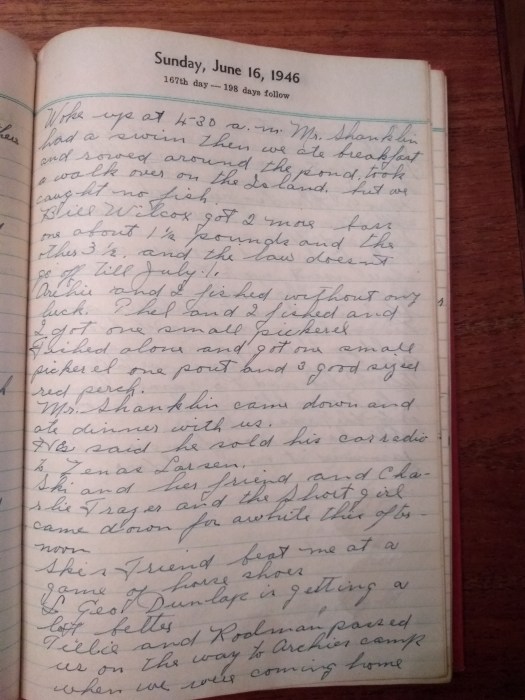 Sunday, June 16, 1946
167th day — 198 days follow
Woke up at 4-30 a.m Mr. Shanklin
had a swim then we ate breakfast
and rowed around the pond, took
a walk over on the Island. but we
caught no fish.
Bill Wilcox got 2 more bass
one about 1½ pounds and the
other 3½. and the law doesn't
go off till July 1.
Archie and I fished without any
luck. Phel and I fished and
I got one small pickerel
I fished alone and got one small
pickerel one pout and 3 good sized
red perch.
Mr. Shanklin came down and
ate dinner with us.
He said he sold his car radio
to Zenas Larsen.
Ski and her friend and Cha-
rlie Frazer and the Short girl
came down for awhile this after-
noon
Ski's Friend beat me at a
game of horse shoes
Geo Dunlap is getting a
lot better
Tillie and Rodman passed
us on the way to Archies camp
when we were coming home